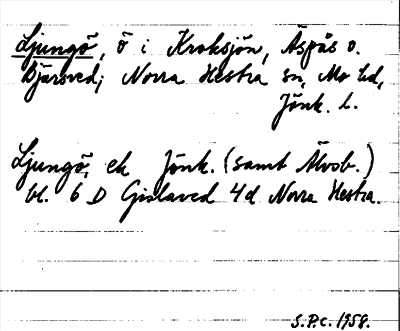 Ljungö, ö i Kroksjön, Äspås o.
Bjärsved; Norra Hestra sn, Mo hd,
Jönk. l.
Ljungö, ek Jönk. (samt Älvsb.)
bl. 6 D Gislaved 4d Norra Hestra.
S.P.C. 1958.